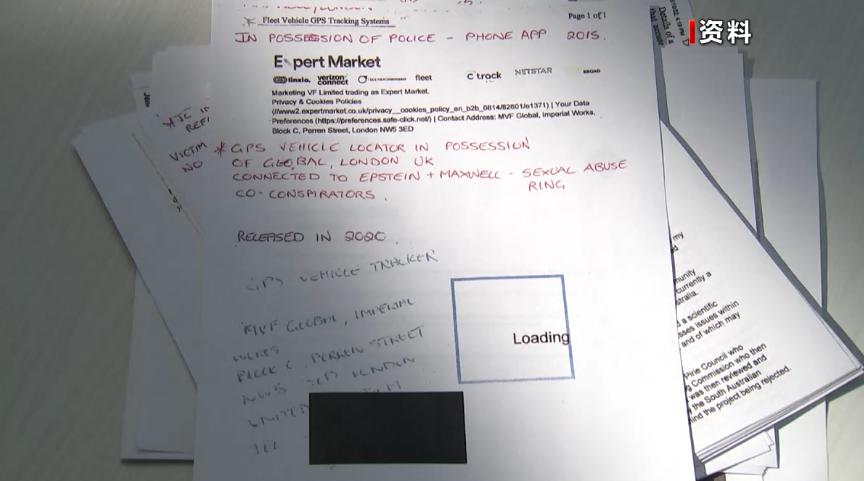 資料
Fleet Vehicle GPS Tracking Systems
Page 1 of 1
IN POSSESSION OF POLICE - PHONE APP 2015.
Expert Market
linxio. verizon connect fleet c track NETSTAR
Marketing VF Limited trading as Expert Market.
Privacy & Cookies Policies
(//www2.expertmarket.co.uk/privacy__cookies_policy_en_b2b_0814/82601/e1371) | Your Data
Preferences (https://preferences.safe-click.net/) | Contact Address: MVF Global, Imperial Works,
Block C, Perren Street, London NW5 3ED
VICTIM
NO
* GPS VEHICLE LOCATOR IN POSSESSION
OF GLOBAL, LONDON UK
CONNECTED TO EPSTEIN + MAXWELL - SEXUAL ABUSE
RING
CO-CONSPIRATORS.
RELEASED IN 2020.
GPS VEHICLE TRACKER
MVF GLOBAL, IMPERIAL
WORKS
BLOCK C, PERREN STREET
NW5 3ED LONDON
UNITED
TEL
Loading
Details of a
my
munity
currently a
stralia.
d a scientific
sses issues within
and of which may
Pirie Council who
g Commission who then
was then reviewed and
the South Australian
nd the project being rejected.